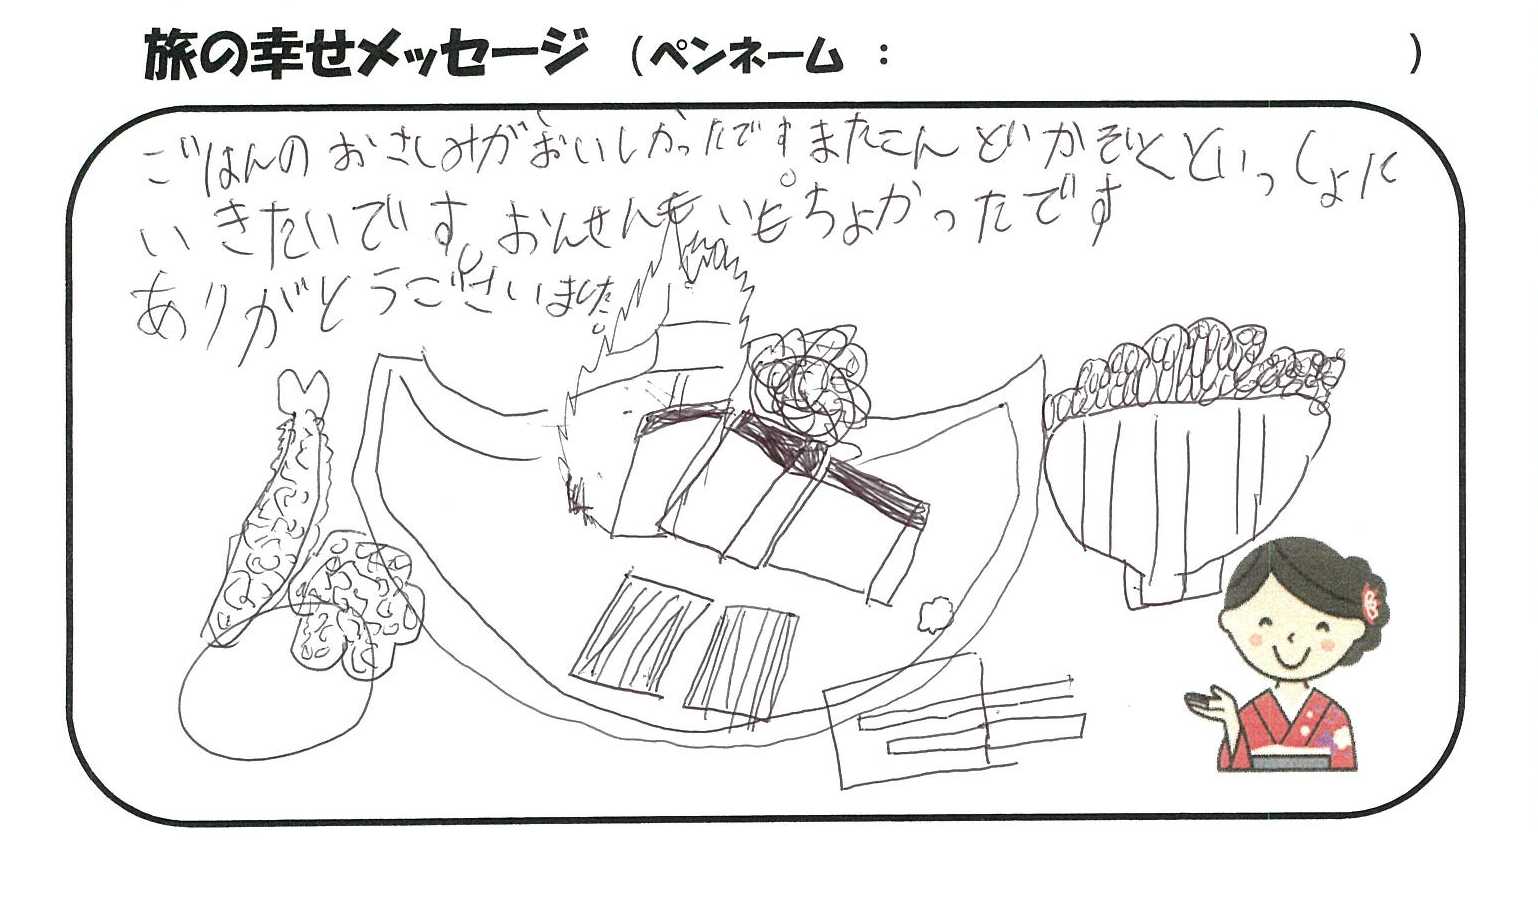 旅の幸せメッセージ (ペンネーム : )
ごはんのおさしみがおいしかったです。またこんどいかぞくといっしょに
いきたいです。おんせんもいもちよかったです
ありがとうございました。